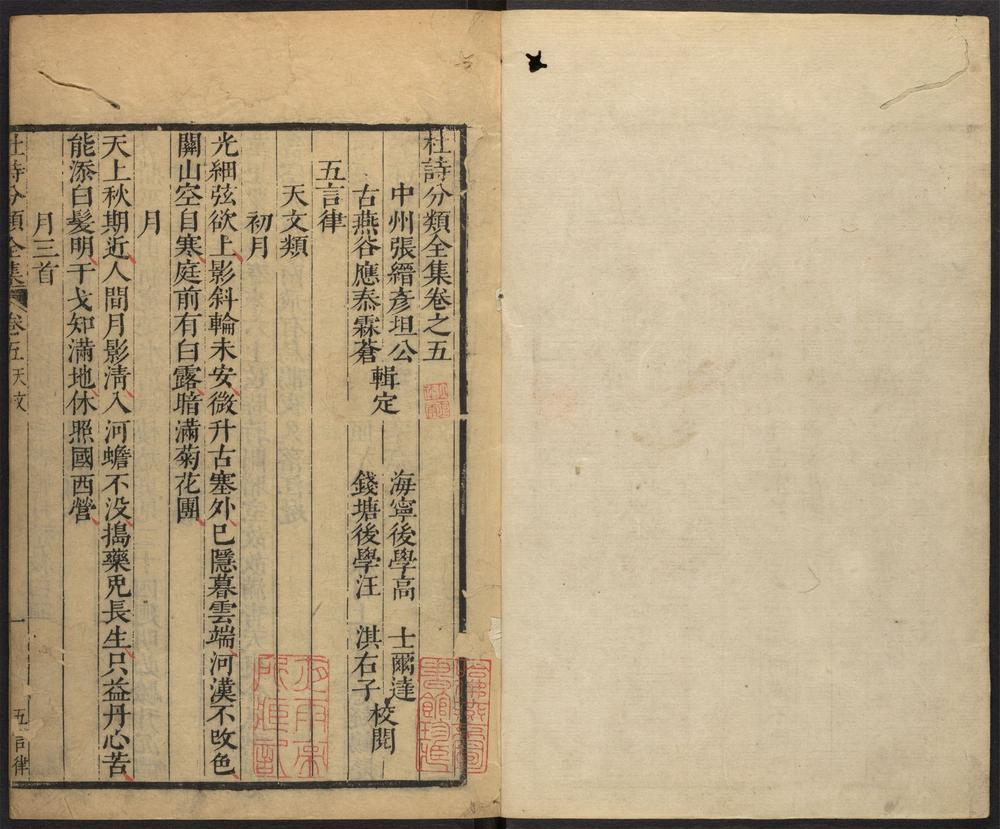 杜詩分類全集卷之五
中州張縉彥坦公
古燕谷應泰霖蒼
輯定
海寧後學高 士爾達
錢塘後學汪 淇右子
校閱
五言律
天文類
初月
光細弦欲上影斜輪未安微升古塞外巳隱暮雲端河漢不改色
關山空自寒庭前有白露暗滿菊花團
月
天上秋期近人間月影清入河蟾不没搗藥兎長生只益丹心苦
能添白髮明干戈知滿地休照國西營
月三首
杜詩分類全集 卷五天文 一 五言律